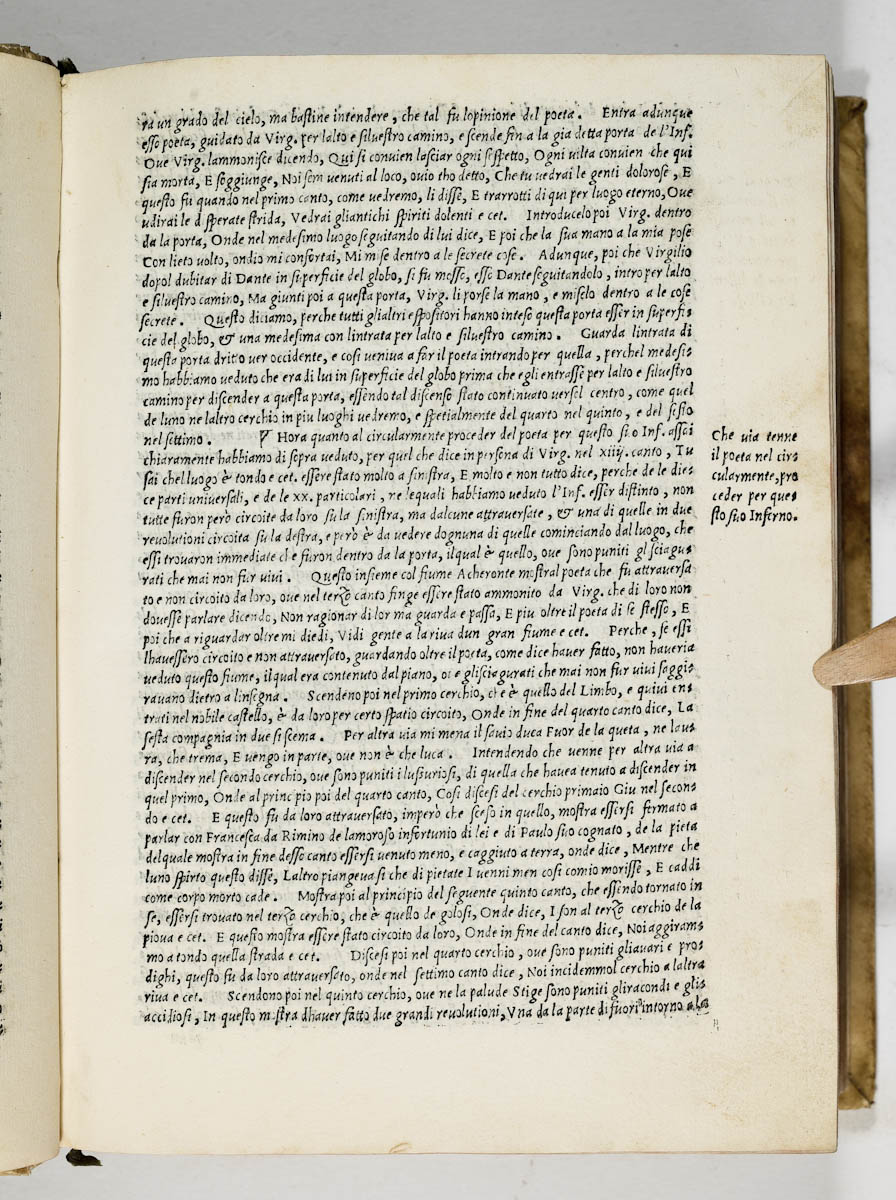 ra un grado del cielo, ma bastine intendere, che tal fu lopinione del poeta. Entra adunque
esso poeta, guidato da Virg. per lalto e siluestro camino, e scende fin a la gia detta porta de l'Inf.
Oue Virg. lammonisce dicendo, Qui si conuien lasciar ogni sospetto, Ogni uilta conuien che qui
sia morta, E soggiunge, Noi sem uenuti al loco, ouio tho detto, Che tu uedrai le genti dolorose, E
questo fu quando nel primo canto, come uedremo, li disse, E trarrotti di qui per luogo eterno, Oue
udirai le disperate strida, Vedrai gliantichi spiriti dolenti e cet. Introducelo poi Virg. dentro
da la porta, Onde nel medesimo luogo seguitando di lui dice, E poi che la sua mano a la mia pose
Con lieto uolto, ondio mi confortai, Mi mise dentro a le secrete cose. Adunque, poi che Virgilio
dopol dubitar di Dante in superficie del globo, si fu mosso, esso Dante seguitandolo, intro per lalto
e siluestro camino, Ma giunti poi a questa porta, Virg. li porse la mano, e miselo dentro a le cose
secrete. Questo diciamo, perche tutti glialtri espositori hanno inteso questa porta esser in superfi-
cie del globo, & una medesima con lintrata per lalto e siluestro camino. Guarda lintrata di
questa porta dritto uer occidente, e cosi ueniua a far il poeta intrando per quella, perchel medesi-
mo habbiamo ueduto che era di lui in superficie del globo prima che egli entrasse per lalto e siluestro
camino per discender a questa porta, essendo tal discenso stato continuato uersel centro, come quel
de luno ne laltro cerchio in piu luoghi uedremo, e spetialmente del quarto nel quinto, e del sesto
nel settimo. Hora quanto al circularmente proceder del poeta per questo suo Inf. assai
chiaramente habbiamo di sopra ueduto, per quel che dice in persona di Virg. nel xiiij. canto, Tu
sai chel luogo è tondo e cet. essere stato molto a sinistra, E molto e non tutto dice, perche de le die-
ce parti uniuersali, e de le xx. particolari, ne lequali habbiamo ueduto l'Inf. esser distinto, non
tutte furon però circoite da loro su la sinistra, ma dalcune attrauersate, & una di quelle in due
reuolutioni circoita su la destra, e però è da uedere dognuna di quelle cominciando dal luogo, che
essi trouaron immediate che furon dentro da la porta, ilqual è quello, oue sono puniti gl sciagu-
rati che mai non fur uiui. Questo insieme col fiume Acheronte mostral poeta che fu attrauersa
to e non circoito da loro, oue nel terzo canto finge essere stato ammonito da Virg. che di loro non
douesse parlare dicendo, Non ragionar di lor ma guarda e passa, E piu oltre il poeta di se stesso, E
poi che a riguardar oltre mi diedi, Vidi gente a la riua dun gran fiume e cet. Perche, se essi
lhauessero circoito e non attrauersato, guardando oltre il poeta, come dice hauer fatto, non haueria
ueduto questo fiume, ilqual era contenuto dal piano, oue glisciagurati che mai non fur uiui saggi-
rauano dietro a linsegna. Scendeno poi nel primo cerchio, che è quello del Limbo, e quiui en-
trati nel nobile castello, è da loro per certo spatio circoito, Onde in fine del quarto canto dice, La
sesta compagnia in due si scema. Per altra uia mi mena il sauio duca Fuor de la queta, ne lau-
ra, che trema, E uengo in parte, oue non è che luca. Intendendo che uenne per altra uia a
discender nel secondo cerchio, oue sono puniti i lussuriosi, di quella che hauea tenuto a discender in
quel primo, Onde al principio poi del quarto canto, Cosi discesi del cerchio primaio Giu nel secon-
do e cet. E questo fu da loro attrauersato, imperò che sceso in quello, mostra essersi fermato a
parlar con Francesca da Rimino de lamoroso infortunio di lei e di Paulo suo cognato, de la pieta
delquale mostra in fine desso canto essersi uenuto meno, e caggiuto a terra, onde dice, Mentre che
luno spirto questo disse, Laltro piangeua si che di pietate I uenni men cosi comio morisse, E caddi
come corpo morto cade. Mostra poi al principio del seguente quinto canto, che essendo tornato in
se, essersi trouato nel terzo cerchio, che è quello de golosi, Onde dice, I son al terzo cerchio de la
pioua e cet. E questo mostra essere stato circoito da loro, Onde in fine del canto dice, Noi aggiram-
mo a tondo quella strada e cet. Discesi poi nel quarto cerchio, oue sono puniti gliauari e pro-
dighi, questo fu da loro attrauersato, onde nel settimo canto dice, Noi incidemmol cerchio a laltra
riua e cet. Scendono poi nel quinto cerchio, oue ne la palude Stige sono puniti gliracondi e gli-
accidiosi, In questo mostra dhauer fatto due grandi reuolutioni, Vna da la parte di fuori intorno a la
Che uia tenne
il poeta nel cir-
cularmente, pro
ceder per que-
sto suo Inferno.